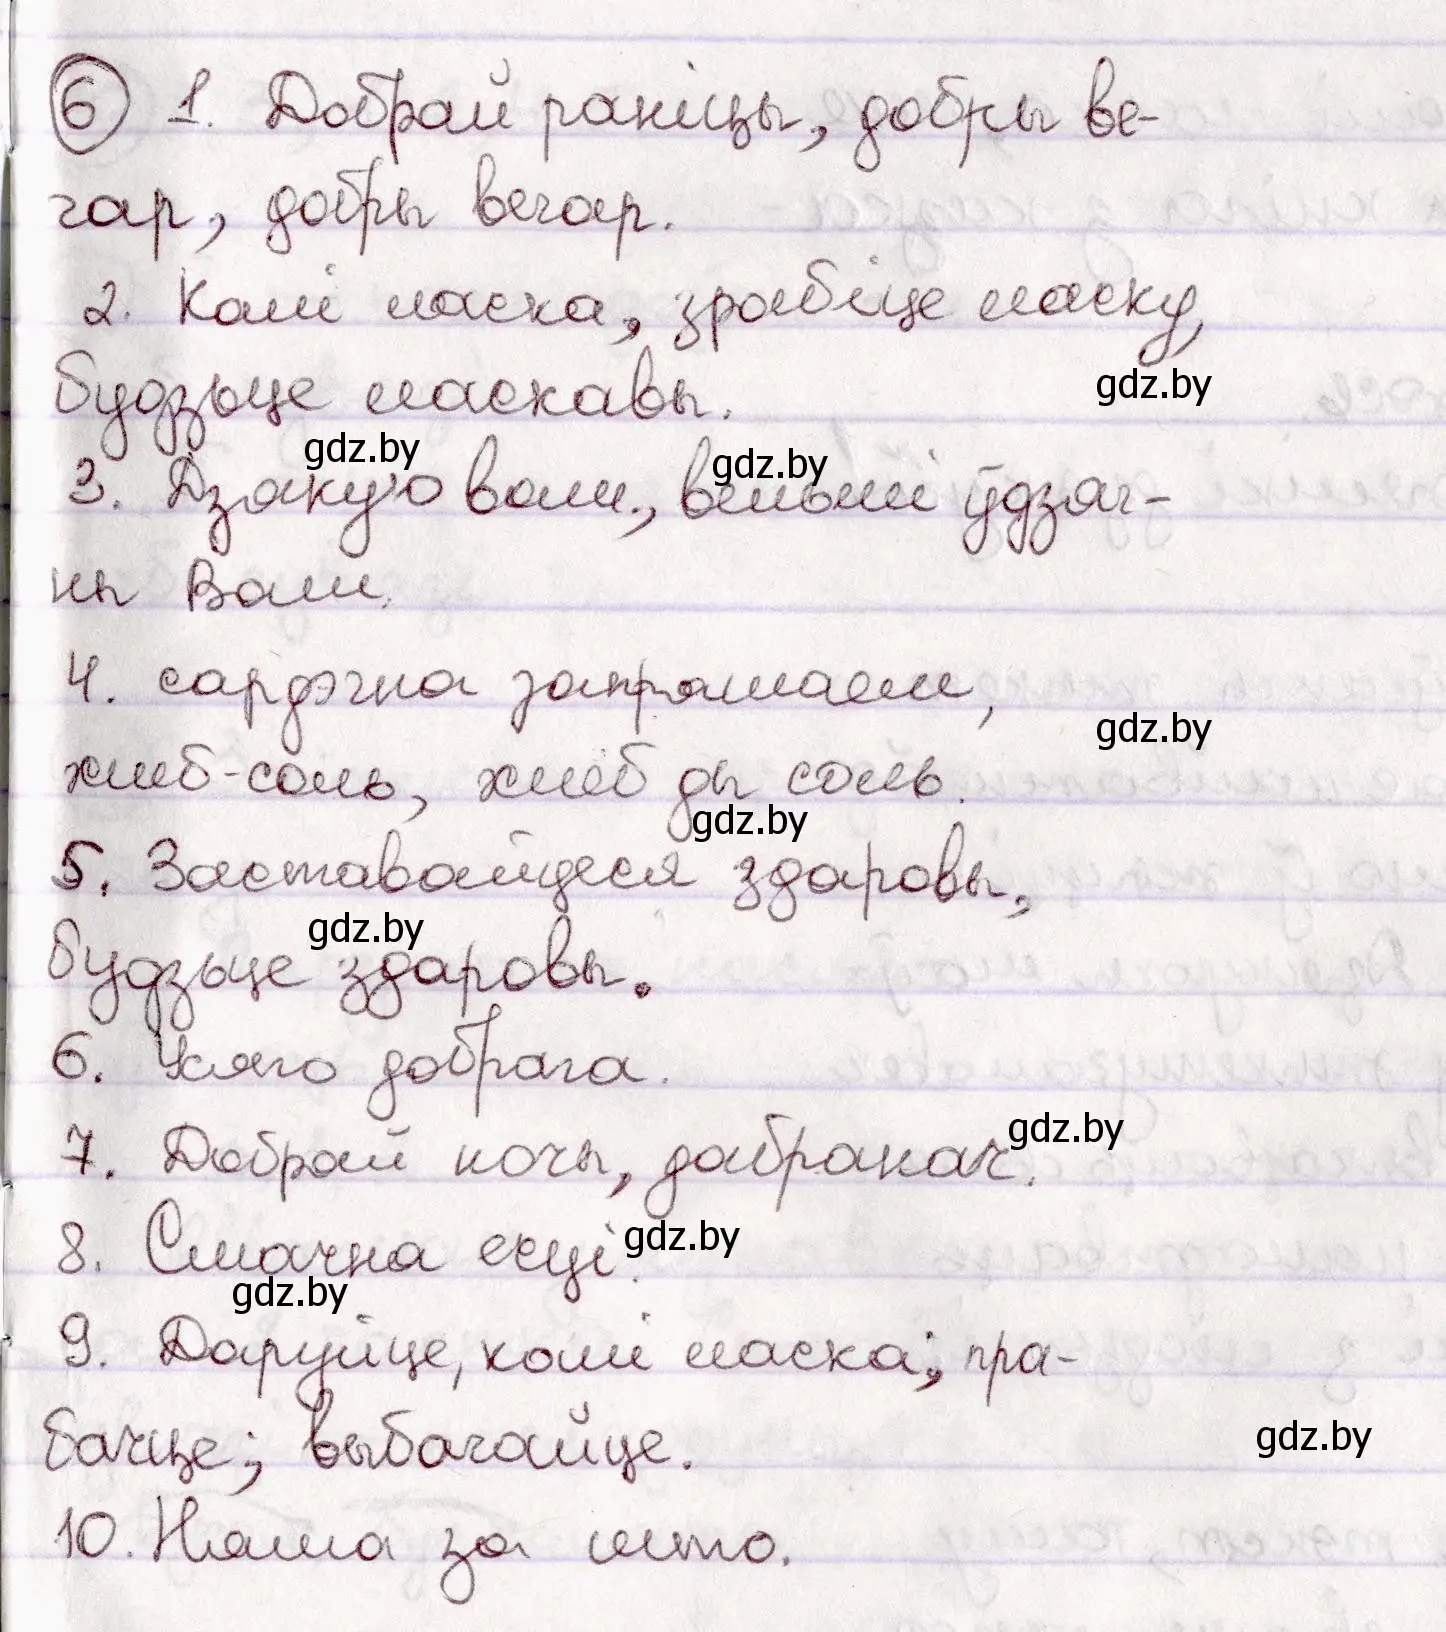 6 1. Добрай раніцы, добры ве-
чар, добры вечар.
2. Калі ласка, зрабіце ласку,
gdz.by
будзьце ласкавы.
gdz.by
gdz.by
3. Дзякую вам, вельмі ўдзяч-
ны Вам.
4. сардэчна запрашаем,
gdz.by
хлеб-соль, хлеб ды соль.
gdz.by
5. Заставайцеся здаровы,
gdz.by
будзьце здаровы.
6. Усяго добрага.
gdz.by
7. Добрай ночы, дабранач.
gdz.by
8. Смачна есці.
gdz.by
9. Даруйце, калі ласка; пра-
бачце; выбачайце.
gdz.by
10. Няма за што.